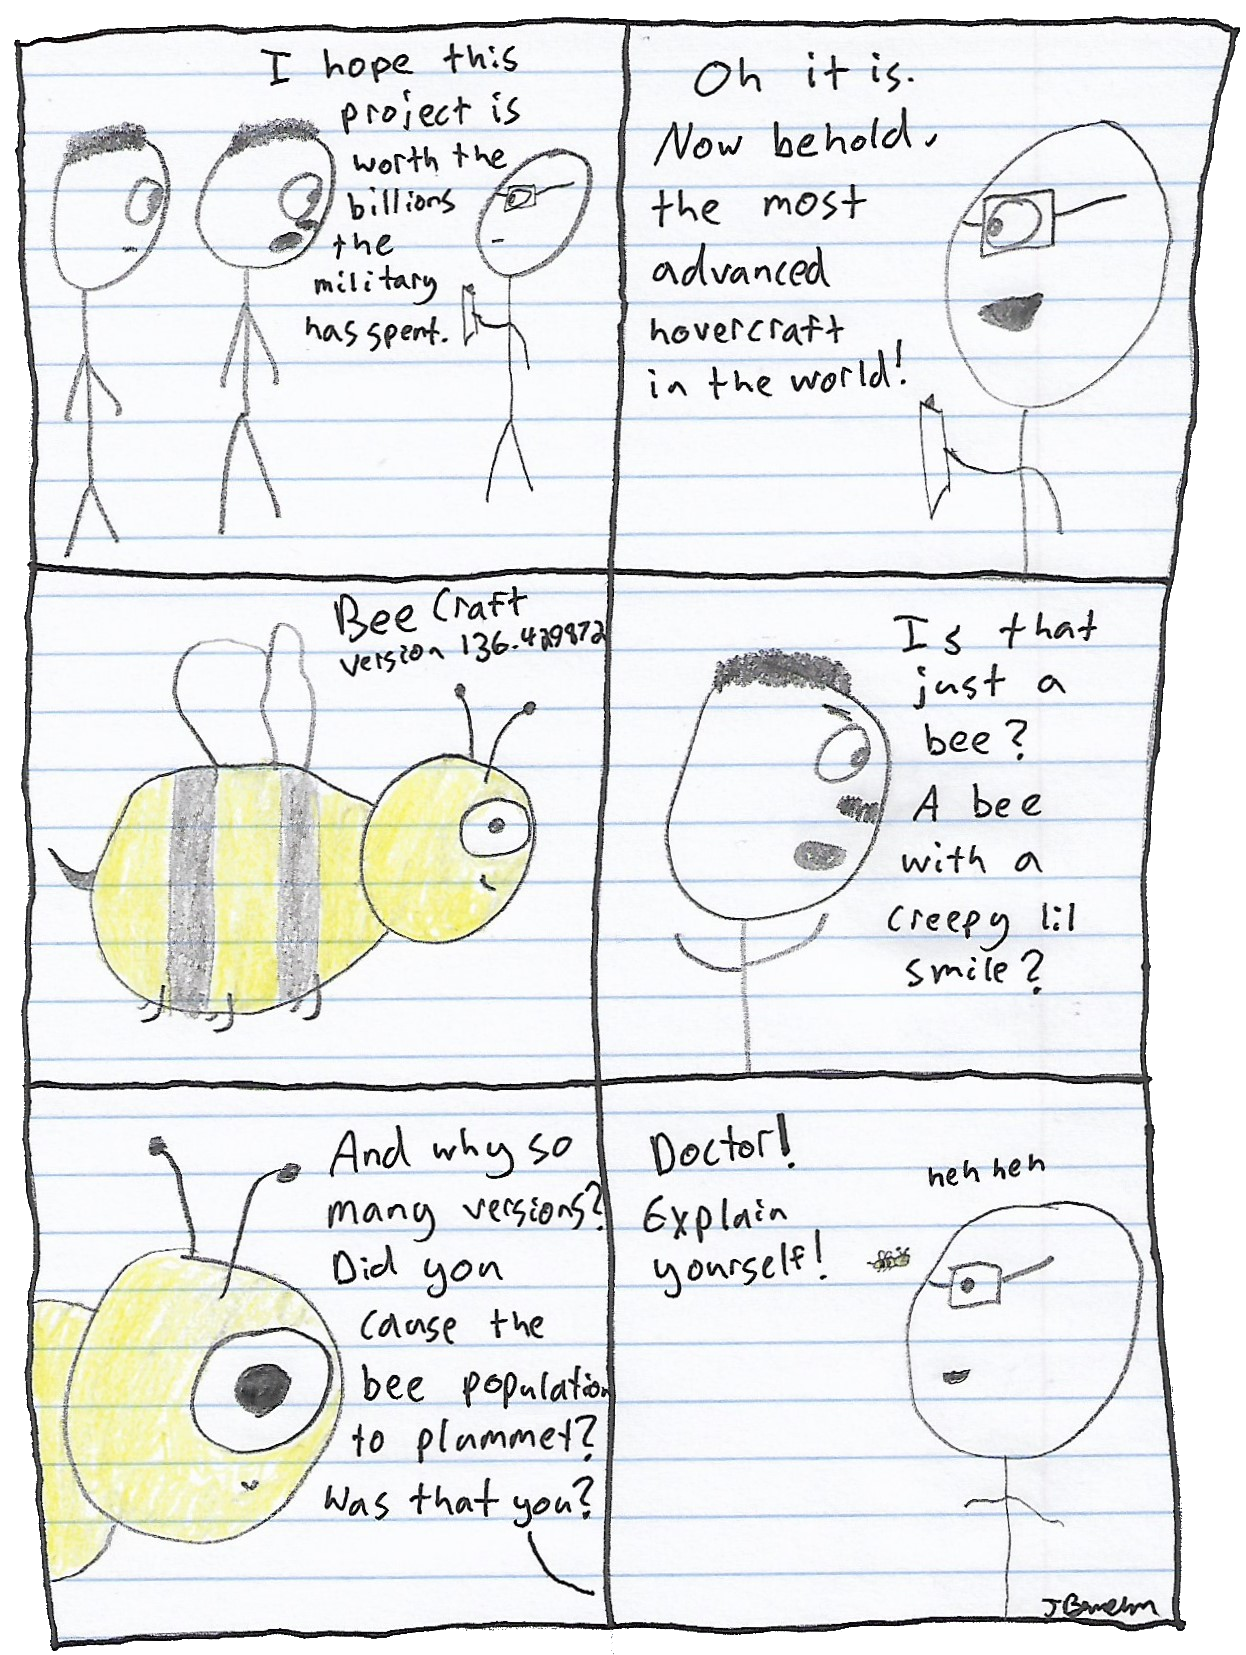 I hope this
project is
worth the
billions
the
military
has spent.
Oh it is.
Now behold,
the most
advanced
hovercraft
in the world!
Bee Craft
version 136.429872
Is that
just a
bee?
A bee
with a
creepy lil
smile?
And why so
many versions?
Did you
cause the
bee population
to plummet?
Was that you?
Doctor!
Explain
yourself!
heh heh